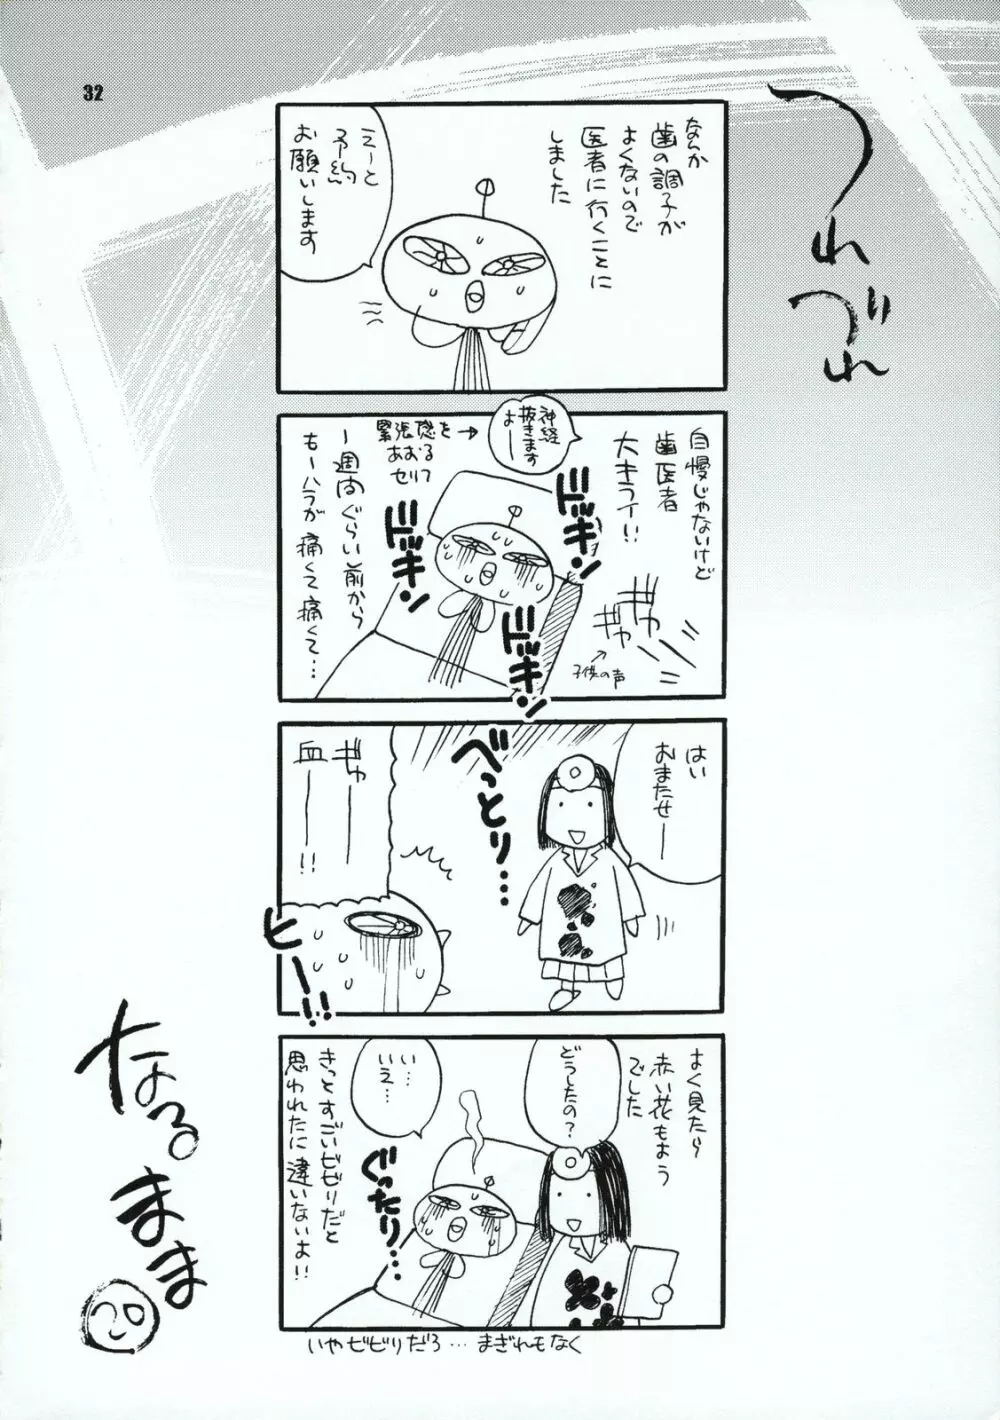 32
つれ
づれ
なんか
歯の調子が
よくないので
医者に行くことに
しました
えーと
予約
お願いします
自慢じゃないけど
歯医者
大キライ!!
神経
抜きます
よーー
緊張感を→
あおる
セリフ
ドッキン
ドッキン
ドッキン
ギャー
ギャー
子供の声
一週間ぐらい前から
もーハラが痛くて痛くて…
はい
おまたせー
べっとり…
ぎゃーー
血ーー!!
ヒーー!!
よく見たら
赤い花もよう
でした
どうしたの?
い…
いえ…
ぐったり…
きっとすごいビビりだと
思われたに違いないよ!!
いやビビりだろ…まぎれもなく
なるまま